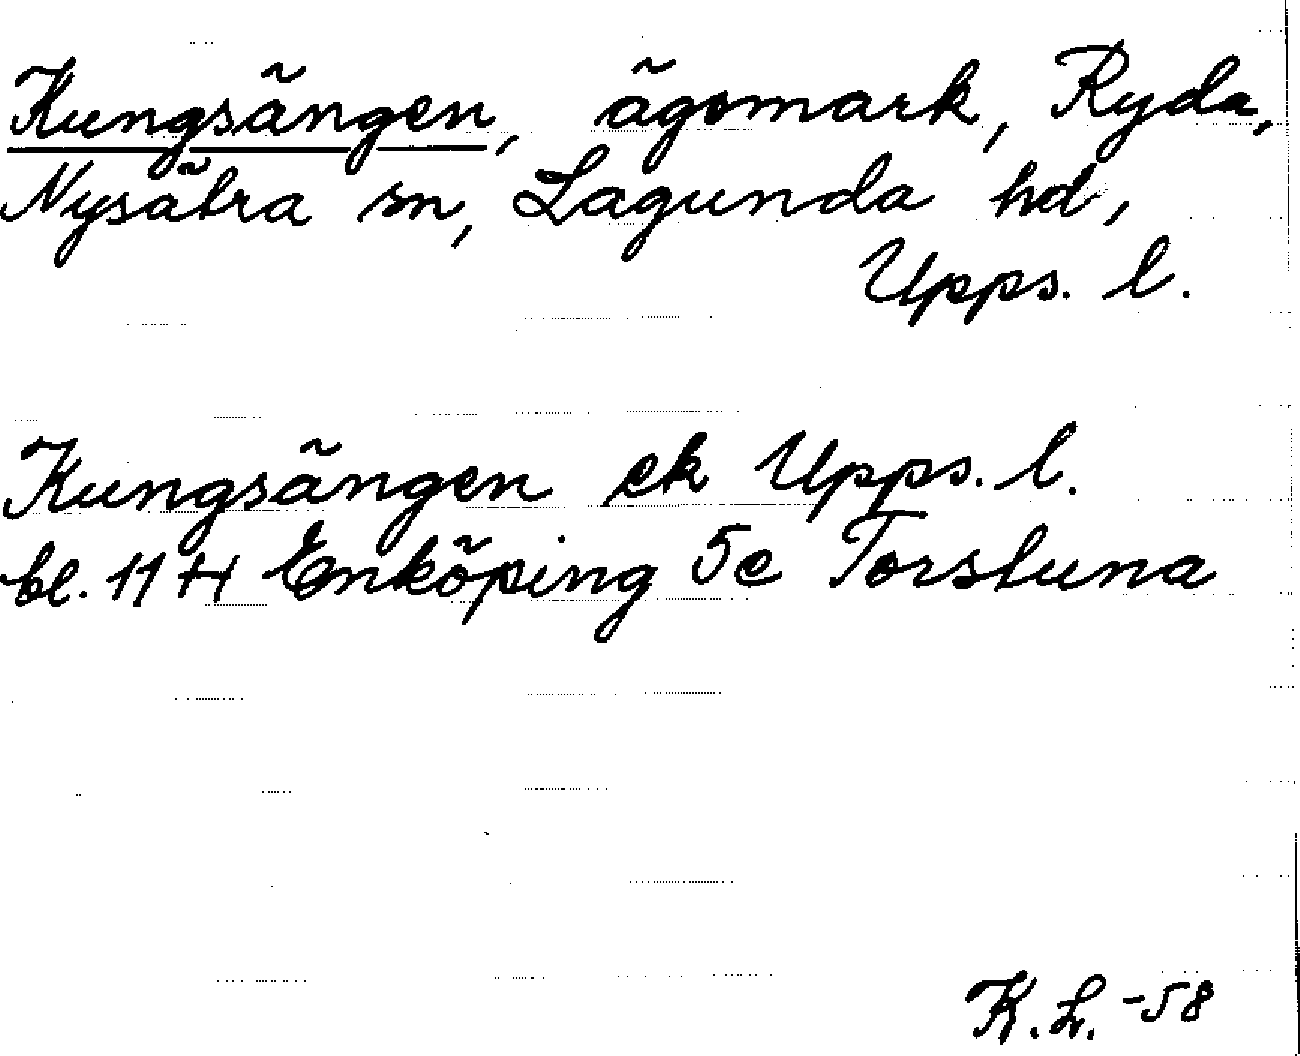 Kungsängen, ägomark, Ryda,
Nysätra sn, Lagunda hd,
Upps. l.
Kungsängen ek Upps. l.
bl. 11 H Enköping 5c Torstuna
K. L. -58